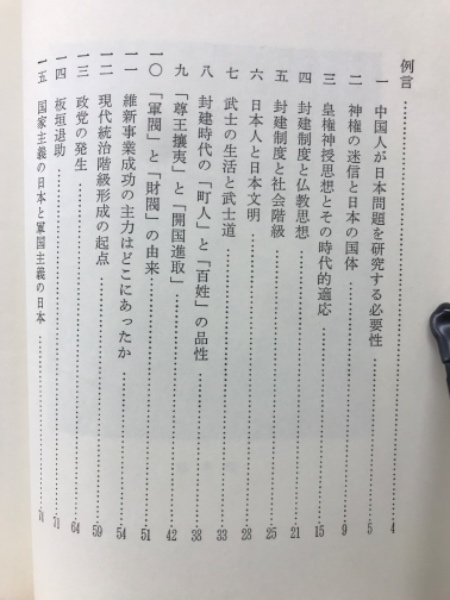 例言……………4
一 中国人が日本問題を研究する必要性……………5
二 神権の迷信と日本の国体……………9
三 皇権神授思想とその時代的適応……………15
四 封建制度と仏教思想……………21
五 封建制度と社会階級……………25
六 日本人と日本文明……………28
七 武士の生活と武士道……………33
八 封建時代の「町人」と「百姓」の品性……………38
九 「尊王攘夷」と「開国進取」……………42
一〇 「軍閥」と「財閥」の由来……………51
一一 維新事業成功の主力はどこにあったか……………54
一二 現代統治階級形成の起点……………59
一三 政党の発生……………64
一四 板垣退助……………71
一五 国家主義の日本と軍国主義の日本……………78